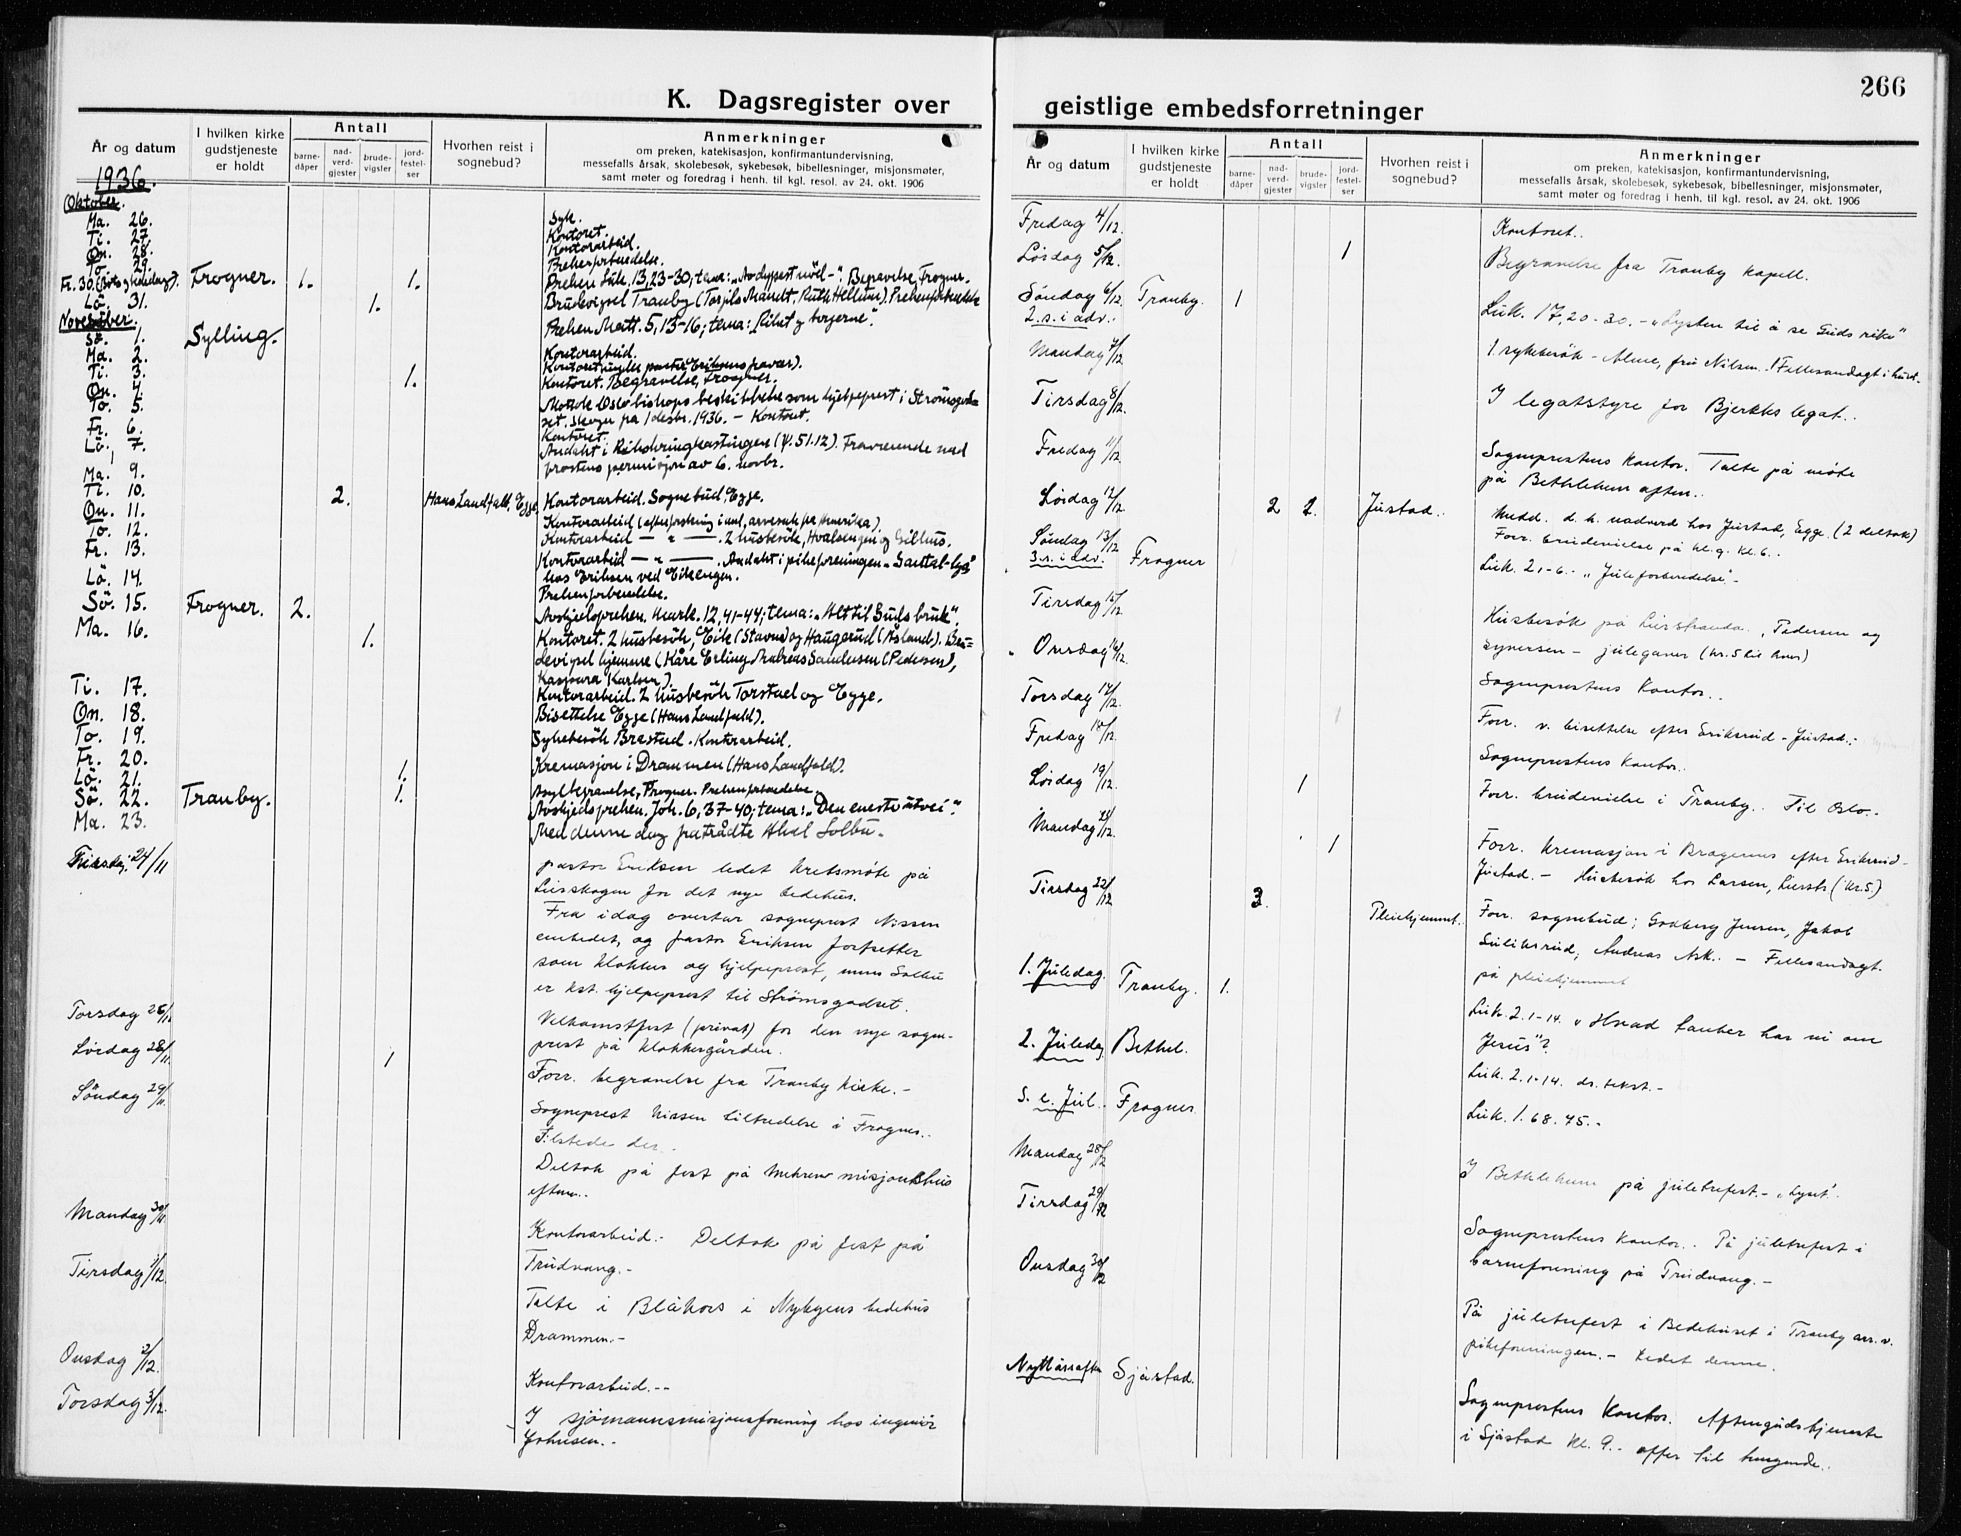 K. Dagsregister over
År og datum
I hvilken kirke
gudstjeneste
er holdt
Antall
barne-
dåper
nad-
verd-
gjester
brude-
vigsler
jord-
festel-
ser
Hvorhen reist i
sognebud?
Anmerkninger
om preken, katekisasjon, konfirmantundervisning,
messefalls årsak, skolebesøk, sykebesøk, bibellesninger, misjonsmøter,
samt møter og foredrag i henh. til kgl. resol. av 24. okt. 1906
1936.
Oktober.
Ma. 26. Syk.
Ti. 27. Kontoret.
On. 28. Kontorarbeid.
To. 29. Prekenforberedelse.
Fr. 30. (Bots og bededag). Frogner. 1. 1. Preken Luk. 13,23-30; tema: „Av dypest nöd-". Begravelse, Frogner.
Lö. 31. 1. Brudevigsel Tranby (Torjils Mandt, Ruth Hellum). Prekenforberedelse
November.
Sö. 1. Sylling. Preken Matt. 5,13-16; tema: „Riket og borgerne".
Ma. 2. Kontorarbeid.
Ti. 3. Kontoret (under pastor Eriksens fravær).
On. 4. 1. Kontoret. Begravelse, Frogner.
To. 5. Mottok Oslo bishops beskikkelse som hjelpeprest i Strömsgod-
set, Skoger fra 1 desbr. 1936. - Kontoret.
Fr. 6. Kontoret.
Lö. 7. Andakt i Rikskringkastingen (ψ. 51.12). Fraværende med
prostens permisjon av 6. novbr.
Ma. 9.
Ti. 10. 2. Hans Landfald, Egge. Kontorarbeid. Sognebud, Egge.
On. 11. Kontorarbeid (efterforskning i anl. arvesak fra Amerika).
To. 12. Kontorarbeid — " — . 2 husbesök, Hvalsengen og Gilhus.
Fr. 13. Kontorarbeid — " — . Andakt i pikeforeningen „Santal-
hos Eriksen ved Eikengen.
Lö. 14. Prekenforberedelse.
Sö. 15. Frogner. 2. Avskjedspreken. Mark. 12,41-44; tema: „Alt til Guds bruk".
Ma. 16. 1. Kontoret. 2 husbesök, Eik (Stavne) og Haugerud (Åsland). Bru-
devigsel hjemme (Kåre Erling Andreas Sandersen (Pedersen),
Kaspara Karlsen).
Ti. 17. Kontorarbeid. 2 husbesök Torstad og Egge.
On. 18. Bisettelse Egge (Hans Landfald).
To. 19. Sykebesök Brastad. Kontorarbeid.
Fr. 20. Kremasjon i Drammen (Hans Landfald).
Lö. 21. 1. Asylbegravelse, Frogner. Prekenforberedelse.
Sö. 22. Tranby. 1. Avskjedspreken. Joh. 6,37-40; tema: „Den eneste utvei".
Ma. 23. Med denne dag fratrådte Aksel Solbu.
Tirsdag 24/11 pastor Eriksen ledet kretsmöte på
Lierskogen for det nye bedehus.
Fra idag overtar sogneprest Nissen
embedet, og pastor Eriksen fortsetter
som klokker og hjelpeprest, mens Solbu
er kst. hjelpeprest til Strömsgodset.
Torsdag 26/11 Velkomstfest (privat) for den nye sogne-
prest på klokkergården.
Lördag 28/11. 1 Forr. begravelse fra Tranby kirke.-
Söndag 29/11. Sogneprest Nissen tiltredelse i Frogner..
Tilstede der..
Deltok på fest på Mehren misjonshus
eftm..
Mandag 30/11 Kontorarbeid.- Deltok på fest på
Trudvang.-
Tirsdag 1/12. Talte i Blåkors i Nykyens bedehus
Drammen.-
Onsdag 2/12. Kontorarbeid.--
Torsdag 3/12. I sjömannsmisjonsforening hos ingeniör
Johnsen.-
geistlige embedsforretninger
266
År og datum
I hvilken kirke
gudstjeneste
er holdt
Antall
barne-
dåper
nad-
verd-
gjester
brude-
vigsler
jord-
festel-
ser
Hvorhen reist i
sognebud?
Anmerkninger
om preken, katekisasjon, konfirmantundervisning,
messefalls årsak, skolebesøk, sykebesøk, bibellesninger, misjonsmøter,
samt møter og foredrag i henh. til kgl. resol. av 24. okt. 1906
Fredag 4/12. Kontoret..
Lördag 5/12. 1 Begravelse fra Tranby kapell.
Söndag 6/12. Tranby. 1 Luk. 17,20-30.- „Lysten til å se Guds rike"
2. s. i adv.
Mandag 7/12 1 sykebesök - Alme, fru Nilsen. 1 Fellesandagt i
Tirsdag 8/12. I legatstyre for Bjerkks legat..
Fredag 11/12 Sogneprestens kontor. Talte på möte
på Bethlehem aften..
Lördag 12/12 2 2. Justad.. Medd. d. h. nadverd hos Justad, Egge. (2 deltok)
Forr. brudevielse på kl. 9. kl. 6..
Söndag 13/12 Frogner Luk. 2 1-6.- „Juleforberedelse".-
3. s. i adv.
Tirsdag 15/12. Husbesök på Lierstranda., Pedersen og
Synersen - julegaver (kr. 5 til hver)
Onsdag 16/12. Sogneprestens kontor..
Torsdag 17/12. 1 Forr. v. bisettelse efter Eriksrud - Justad..
Fredag 18/12. Sogneprestens kontor..
Lördag 19/12. 1 Forr. brudevielse i Tranby.. Til Oslo..
Mandag 21/12. 1 Forr. kremasjon i Bragernes efter Eriksrud-
Justad. - Husbesök hos Larsen, Lierstr. (kr. 5.)
Tirsdag 22/12 3. Pleiehjemmet. Forr. sognebud; Godberg Jensen, Jakob
Suliksrud, Andreas Ask.. - Fellesandagt.
på pleiehjemmet
1. Juledag Tranby. 1. Luk. 2.1-14. „Hvad tanker har vi om
Jesus"?
2. Juledag Bethel. Luk. 2.1-14. ds. tekst.-
S. e. Jul. Frogner Luk. 1.68.75.-
Mandag 28/12 I Bethlehem på juletrefest.- „Lyset".
Tirsdag 29/12 Sogneprestens kontor.. På juletrefest i
barneforening på Trudvang.-
Onsdag 30/12 På juletrefest i Bedehuset i Tranby arr. v.
pikeforeningen.- Ledet denne.
Nyttårsaften Sjåstad. Sogneprestens kontor. Aftengudstjeneste
i Sjåstad kl. 9.. offer til trengende..